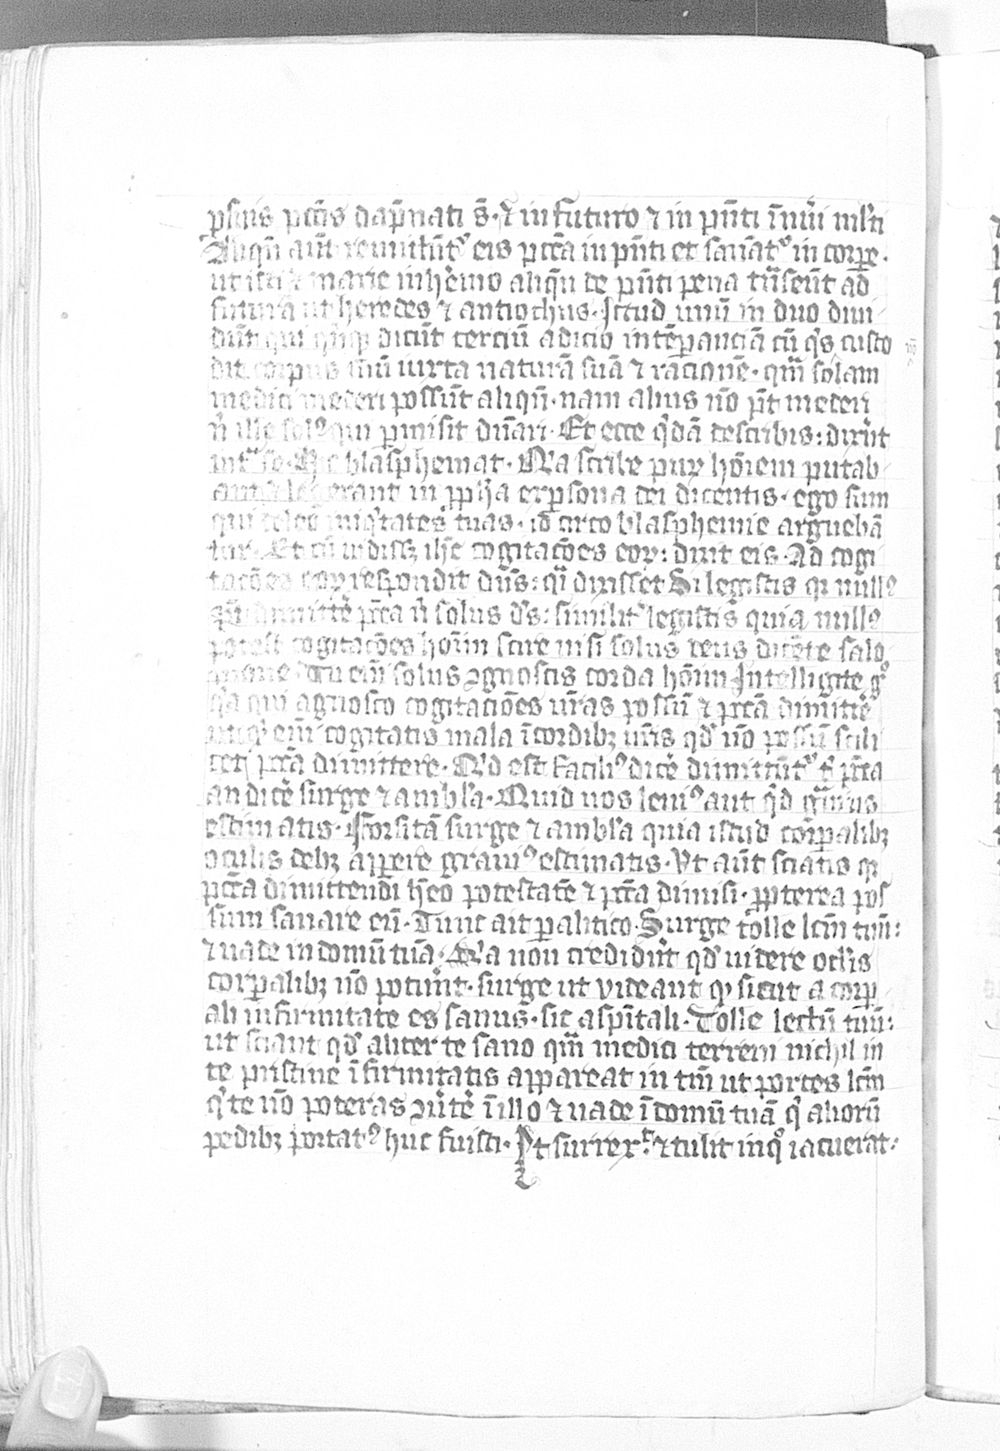 p suis pctīs dap̄nati s̄t · ⁊ in futuro ⁊ in pn̄ti
Aliqn̄ aut̄ remittūt᷑ eis pctā in pn̄ti et sanāt᷑ in corpe ·
aliqn̄ de pn̄ti pena tn̄seūt ad
futurā ut herodes ⁊ antiochus · Istud unū in duo diui
dūt qui dicūt terciū adicio intēperanciā cū q's custo
dit corpus suū iuxta naturā suā ⁊ racionē · qm̄ solam
medici mederi possūt aliqn̄ · nam alius nō pt̄ mederi
n̄ ille sol9 qui p̄misit Et ecce q'dā de scribis : dixer̄t
int᷑ se · Hic blasphemat · Na scribe pur hōiem putab
ant ⁊ legerant in pph̄ia ex psona dei dicentis · ego sum
qui deleo iniq'tates tuas · id circo blasphemie arguebā
tur · Et cū uidissꝫ ih̄c cogitacōes eoꝝ : dixit eis · Ad cogi
tacōes eoꝝ respondit dn̄s : q̄i dixisset Si legistis qꝛ null9
pt̄ dimittē pctā n̄ solus d's : similit᷑ legistis quia null9
potest cogitacōes hom̄ scire nisi solus deus dicēte salo
mone · Tu em̄ solus agnoscis corda hom̄ Intelligite gͦ
q'a qui agnosco cogitaciōes ur̄as possū ⁊ pctā dimittē
cogitatis mala ī cordibꝫ ur̄is qd' nō possū scili
cet pctā dimittere · Qd est facili9 dicē dimittūt᷑ t' pctā
an dicē surge ⁊ ambl'a · Quid uos leui9 aut q'd gͣui9
estimatis · Forsitā surge ⁊ ambl'a quia istud corpalibꝫ
oculis debꝫ appere graui9 estimatis · Ut aut̄ sciatis qꝛ
pctā dimittendi h̄eo potestatē ⁊ pctā dimisi · ppterea pos
sum sanare eū · Tunc ait palitico · Surge tolle lcm̄ tuū :
⁊ uade in domū tuā · Na non credidert̄ qd' uidere oclis
corpalibꝫ nō poterūt · surge ut videant qꝛ sicut a corp
ali infirmitate es sanus · sic a spītali · Tolle lectū tuū :
ut sciant qd' aliter te sano qm̄ medici terreni nichil in
te pristine īfirmitatis appareat in tm̄ ut portes lcm̄
q' te nō poteras mouē ī illo ⁊ uade ī domū tuā q' alioru
pedibꝫ portat9 huc fuisti · Et surrexͭ · ⁊ tulit in qͦ iacuerat :